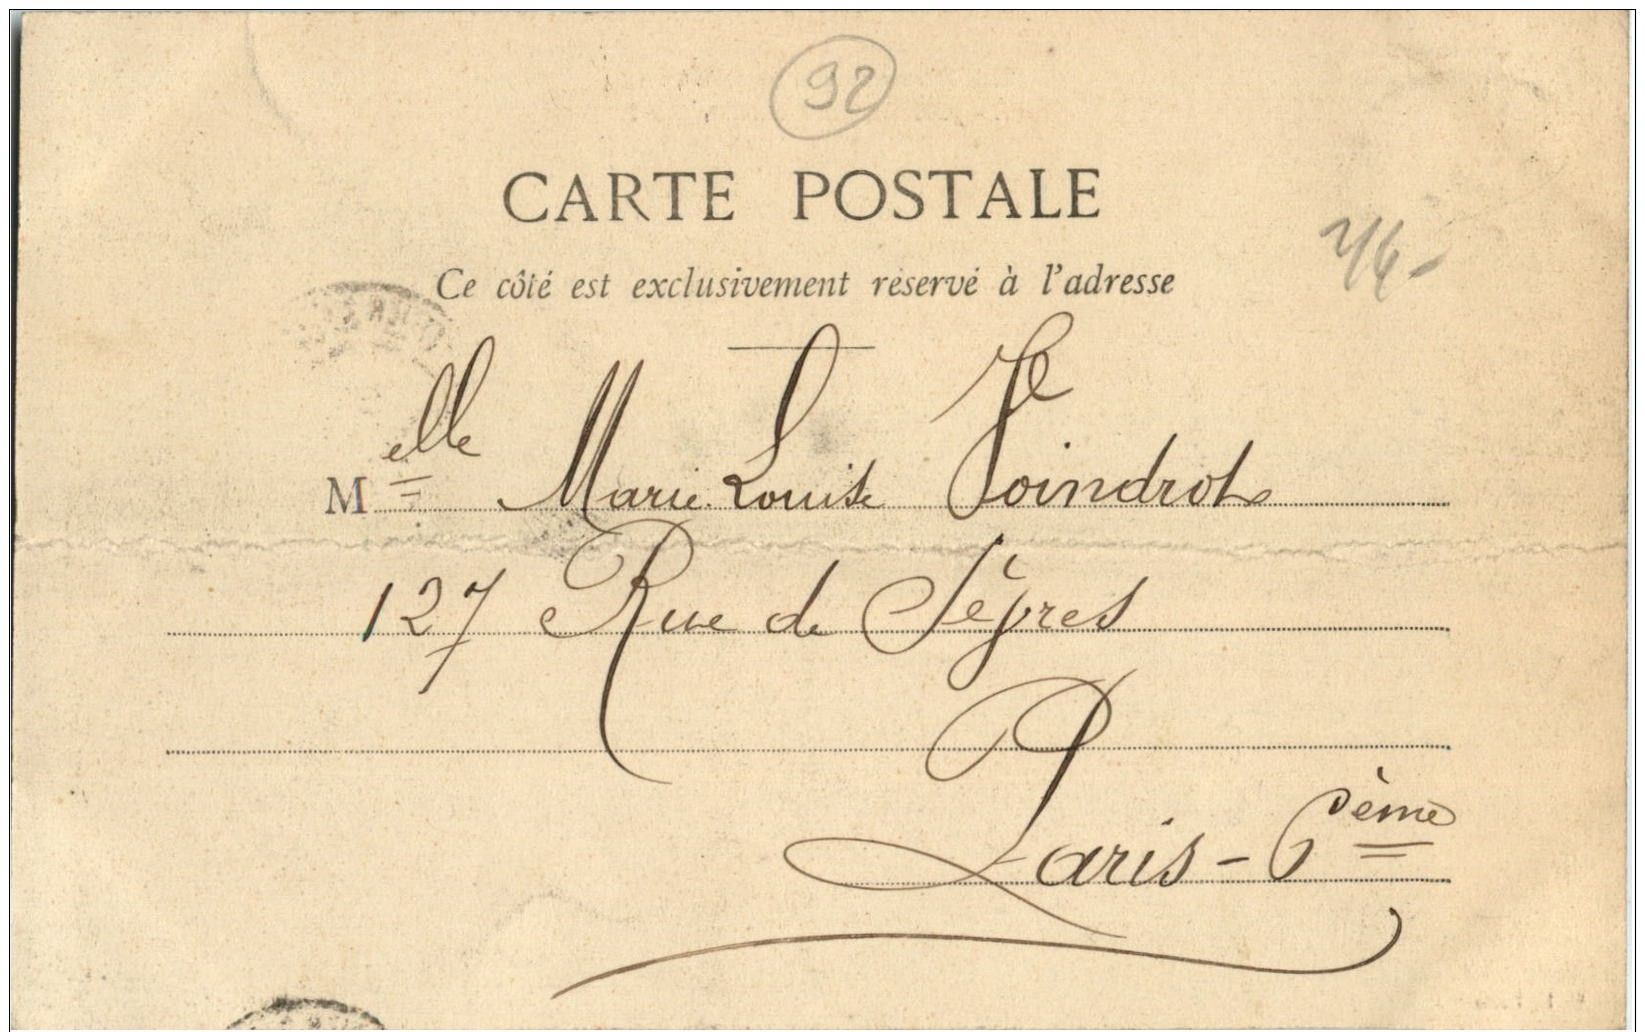 92
CARTE POSTALE
Ce côté est exclusivement réservé à l'adresse
Melle Marie Louise Joindrot
127 Rue de Sèvres
Paris - 6ème